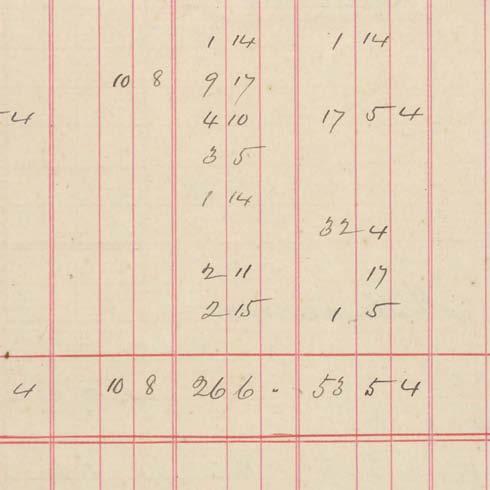 1 14 1 14
10 8 9 17
4 4 10 17 5 4
3 5
1 14
32 4
2 11 17
2 15 1 5
4 10 8 26 6 . 53 5 4